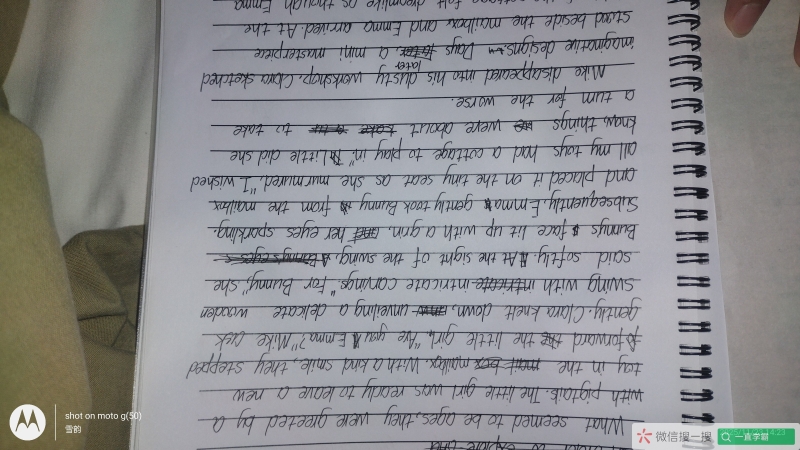 What seemed to be ages, they were greeted by a
with pigtails. The little girl was ready to leave a new
toy in the mailbox. With a kind smile, they stepped
forward the little girl. "Are you Emma?" Mike
gently. Clara knelt down, unveiling a delicate wooden
swing with intricate carvings. "For Bunny," she
said softly. At the sight of the swing,
Bunny's face lit up with a grin, her eyes sparkling.
Subsequently, Emma gently took Bunny from the mailbox
and placed it on the tiny seat as she murmured, "I wished
all my toys had a cottage to play in." Little did she
know, things were about to take
a turn for the worse.
Mike disappeared into his dusty workshop. Clara sketched
imaginative designs. Days later, a mini masterpiece
stood beside the mailbox and Emma arrived. At the
felt dreamlike as though Emma
shot on moto g(50)
雪韵
微信搜一搜
一直学霸